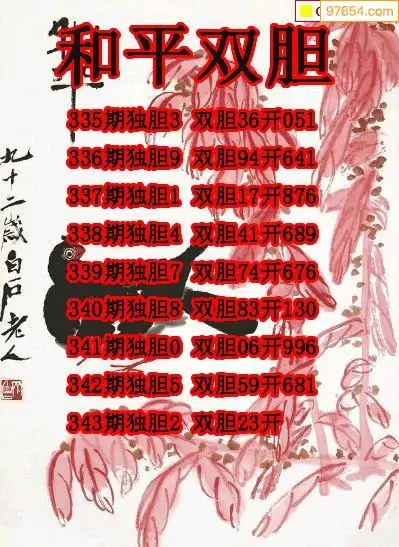 97654.com
和平双胆
335期独胆3 双胆36开051
336期独胆9 双胆94开641
337期独胆1 双胆17开876
338期独胆4 双胆41开689
339期独胆7 双胆74开676
340期独胆8 双胆83开130
341期独胆0 双胆06开996
342期独胆5 双胆59开681
343期独胆2 双胆23开
九十二歲白石老人